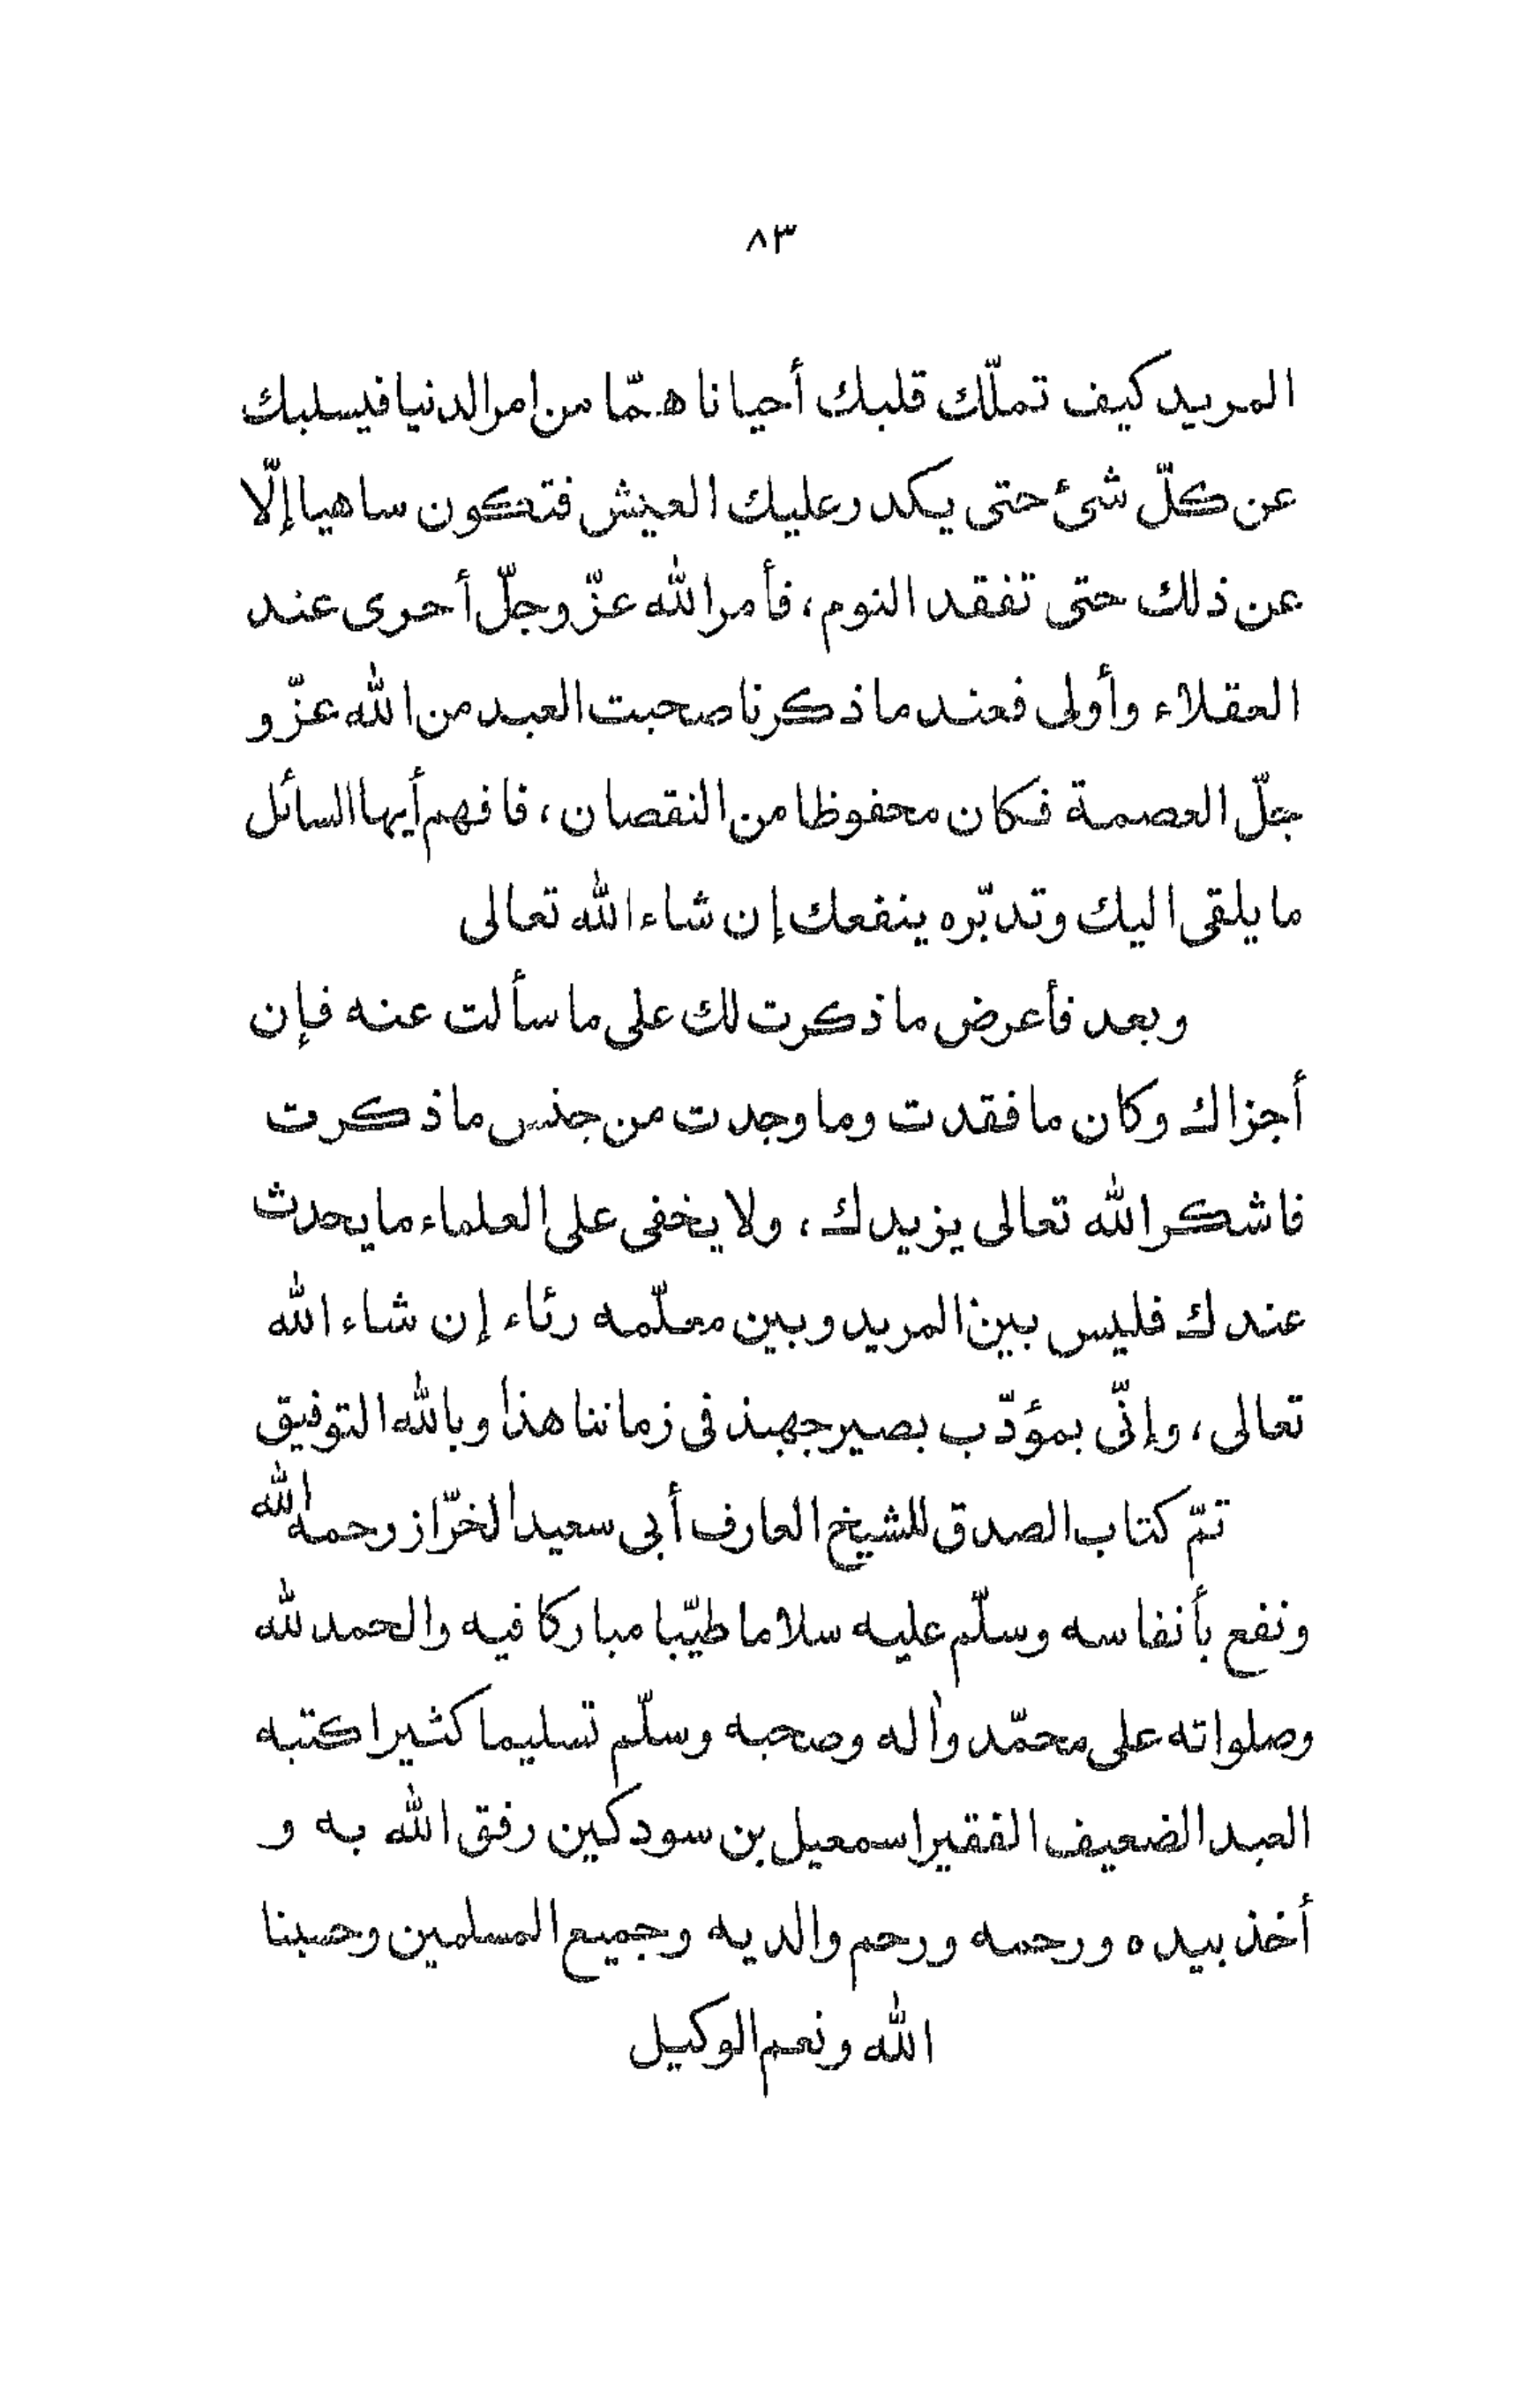 ٨٣
المريد كيف تملّك قلبك أحيانا همّا من امر الدنيا فيسلبك
عن كلّ شئ حتى يكدر عليك العيش فتكون ساهيا إلّا
عن ذلك حتى تفقد النوم، فأمر الله عزّ وجلّ أحرى عند
العقلاء وأولى فعند ما ذكرنا صحبت العبد من الله عزّ و
جلّ العصمة فكان محفوظا من النقصان، فافهم أيها السائل
ما يلقى اليك وتدبّره ينفعك إن شاء الله تعالى
وبعد فأعرض ما ذكرت لك على ما سألت عنه فإن
أجزاك وكان ما فقدت وما وجدت من جنس ما ذكرت
فاشكر الله تعالى يزيدك، ولا يخفى على العلماء ما يحدث
عندك فليس بين المريد وبين معلّمه رئاء إن شاء الله
تعالى، وإنّى بمؤدّب بصير جهبذ فى زماننا هذا وبالله التوفيق
تمّ كتاب الصدق للشيخ العارف أبى سعيد الخرّاز رحمه الله
ونفع بأنفاسه وسلّم عليه سلاما طيّبا مباركا فيه والحمد لله
وصلواته على محمّد واٰله وصحبه وسلّم تسليما كثيرا كتبه
العبد الضعيف الفقير اسمعيل بن سودكين رفق الله به و
أخذ بيده ورحمه ورحم والديه وجميع المسلمين وحسبنا
الله ونعم الوكيل